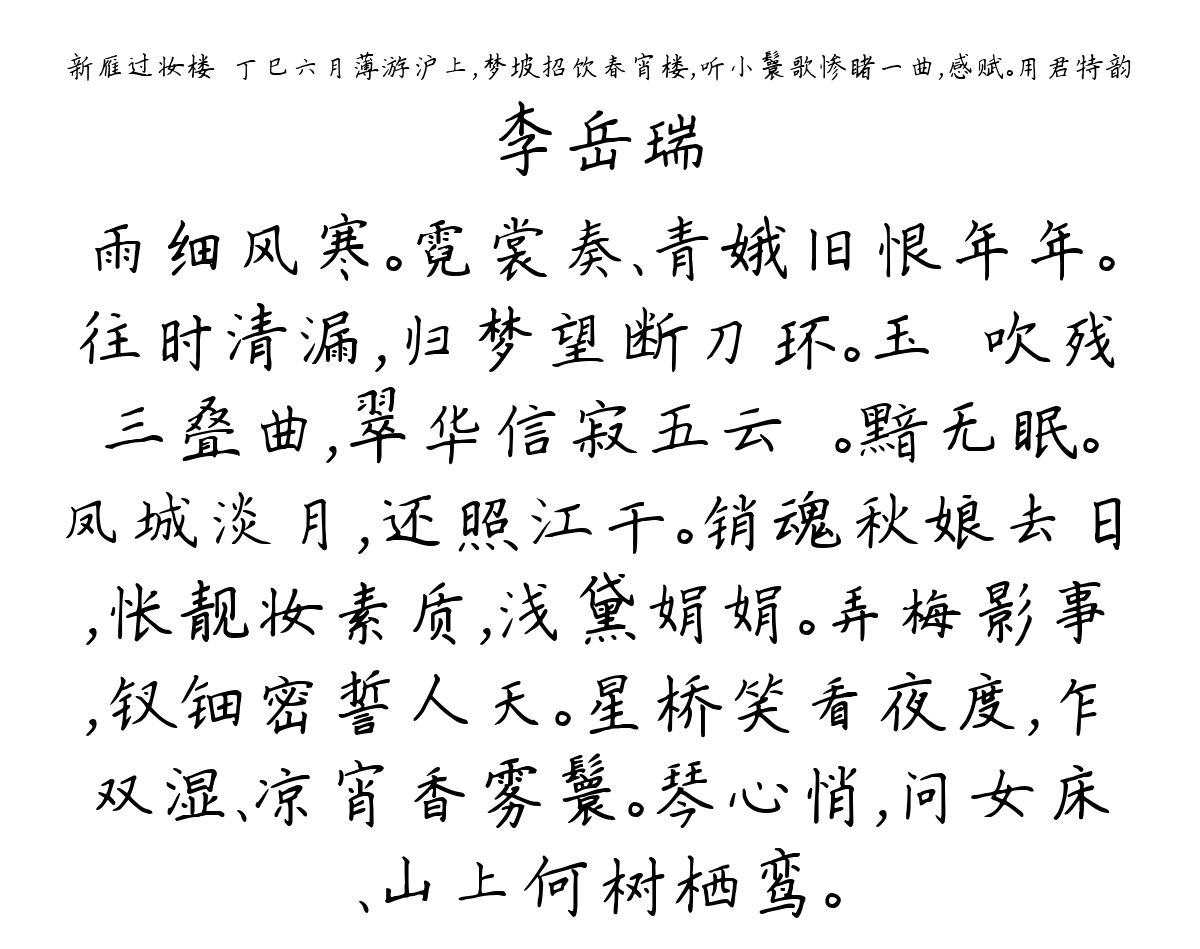 新雁过妆楼 丁巳六月薄游沪上,梦坡招饮春宵楼,听小鬟歌惨睹一曲,感赋。用君特韵
李岳瑞
雨细风寒。霓裳奏、青娥旧恨年年。
往时清漏,归梦望断刀环。玉 吹残
三叠曲,翠华信寂五云 。黯无眠。
凤城淡月,还照江干。销魂秋娘去日
,怅靓妆素质,浅黛娟娟。弄梅影事
,钗钿密誓人天。星桥笑看夜度,乍
双湿、凉宵香雾鬟。琴心悄,问女床
、山上何树栖鸾。